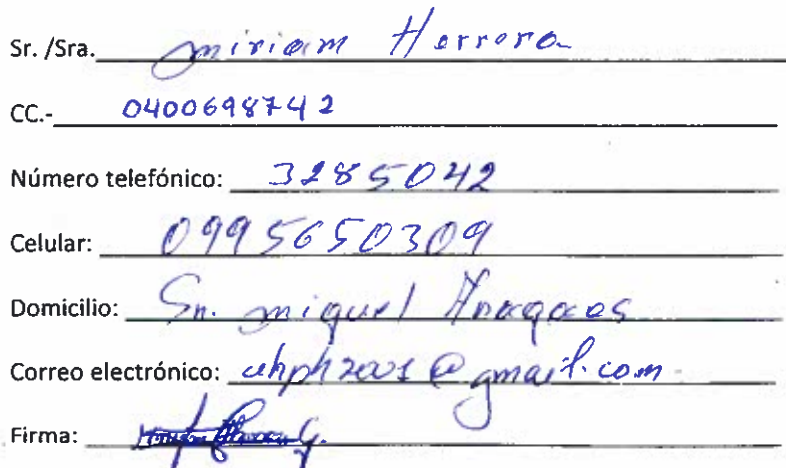 Sr. /Sra. miriam Herrera
CC.- 0400698742
Número telefónico: 3285042
Celular: 0995650309
Domicilio: Sn. miguel
Correo electrónico: @gmail.com
Firma: